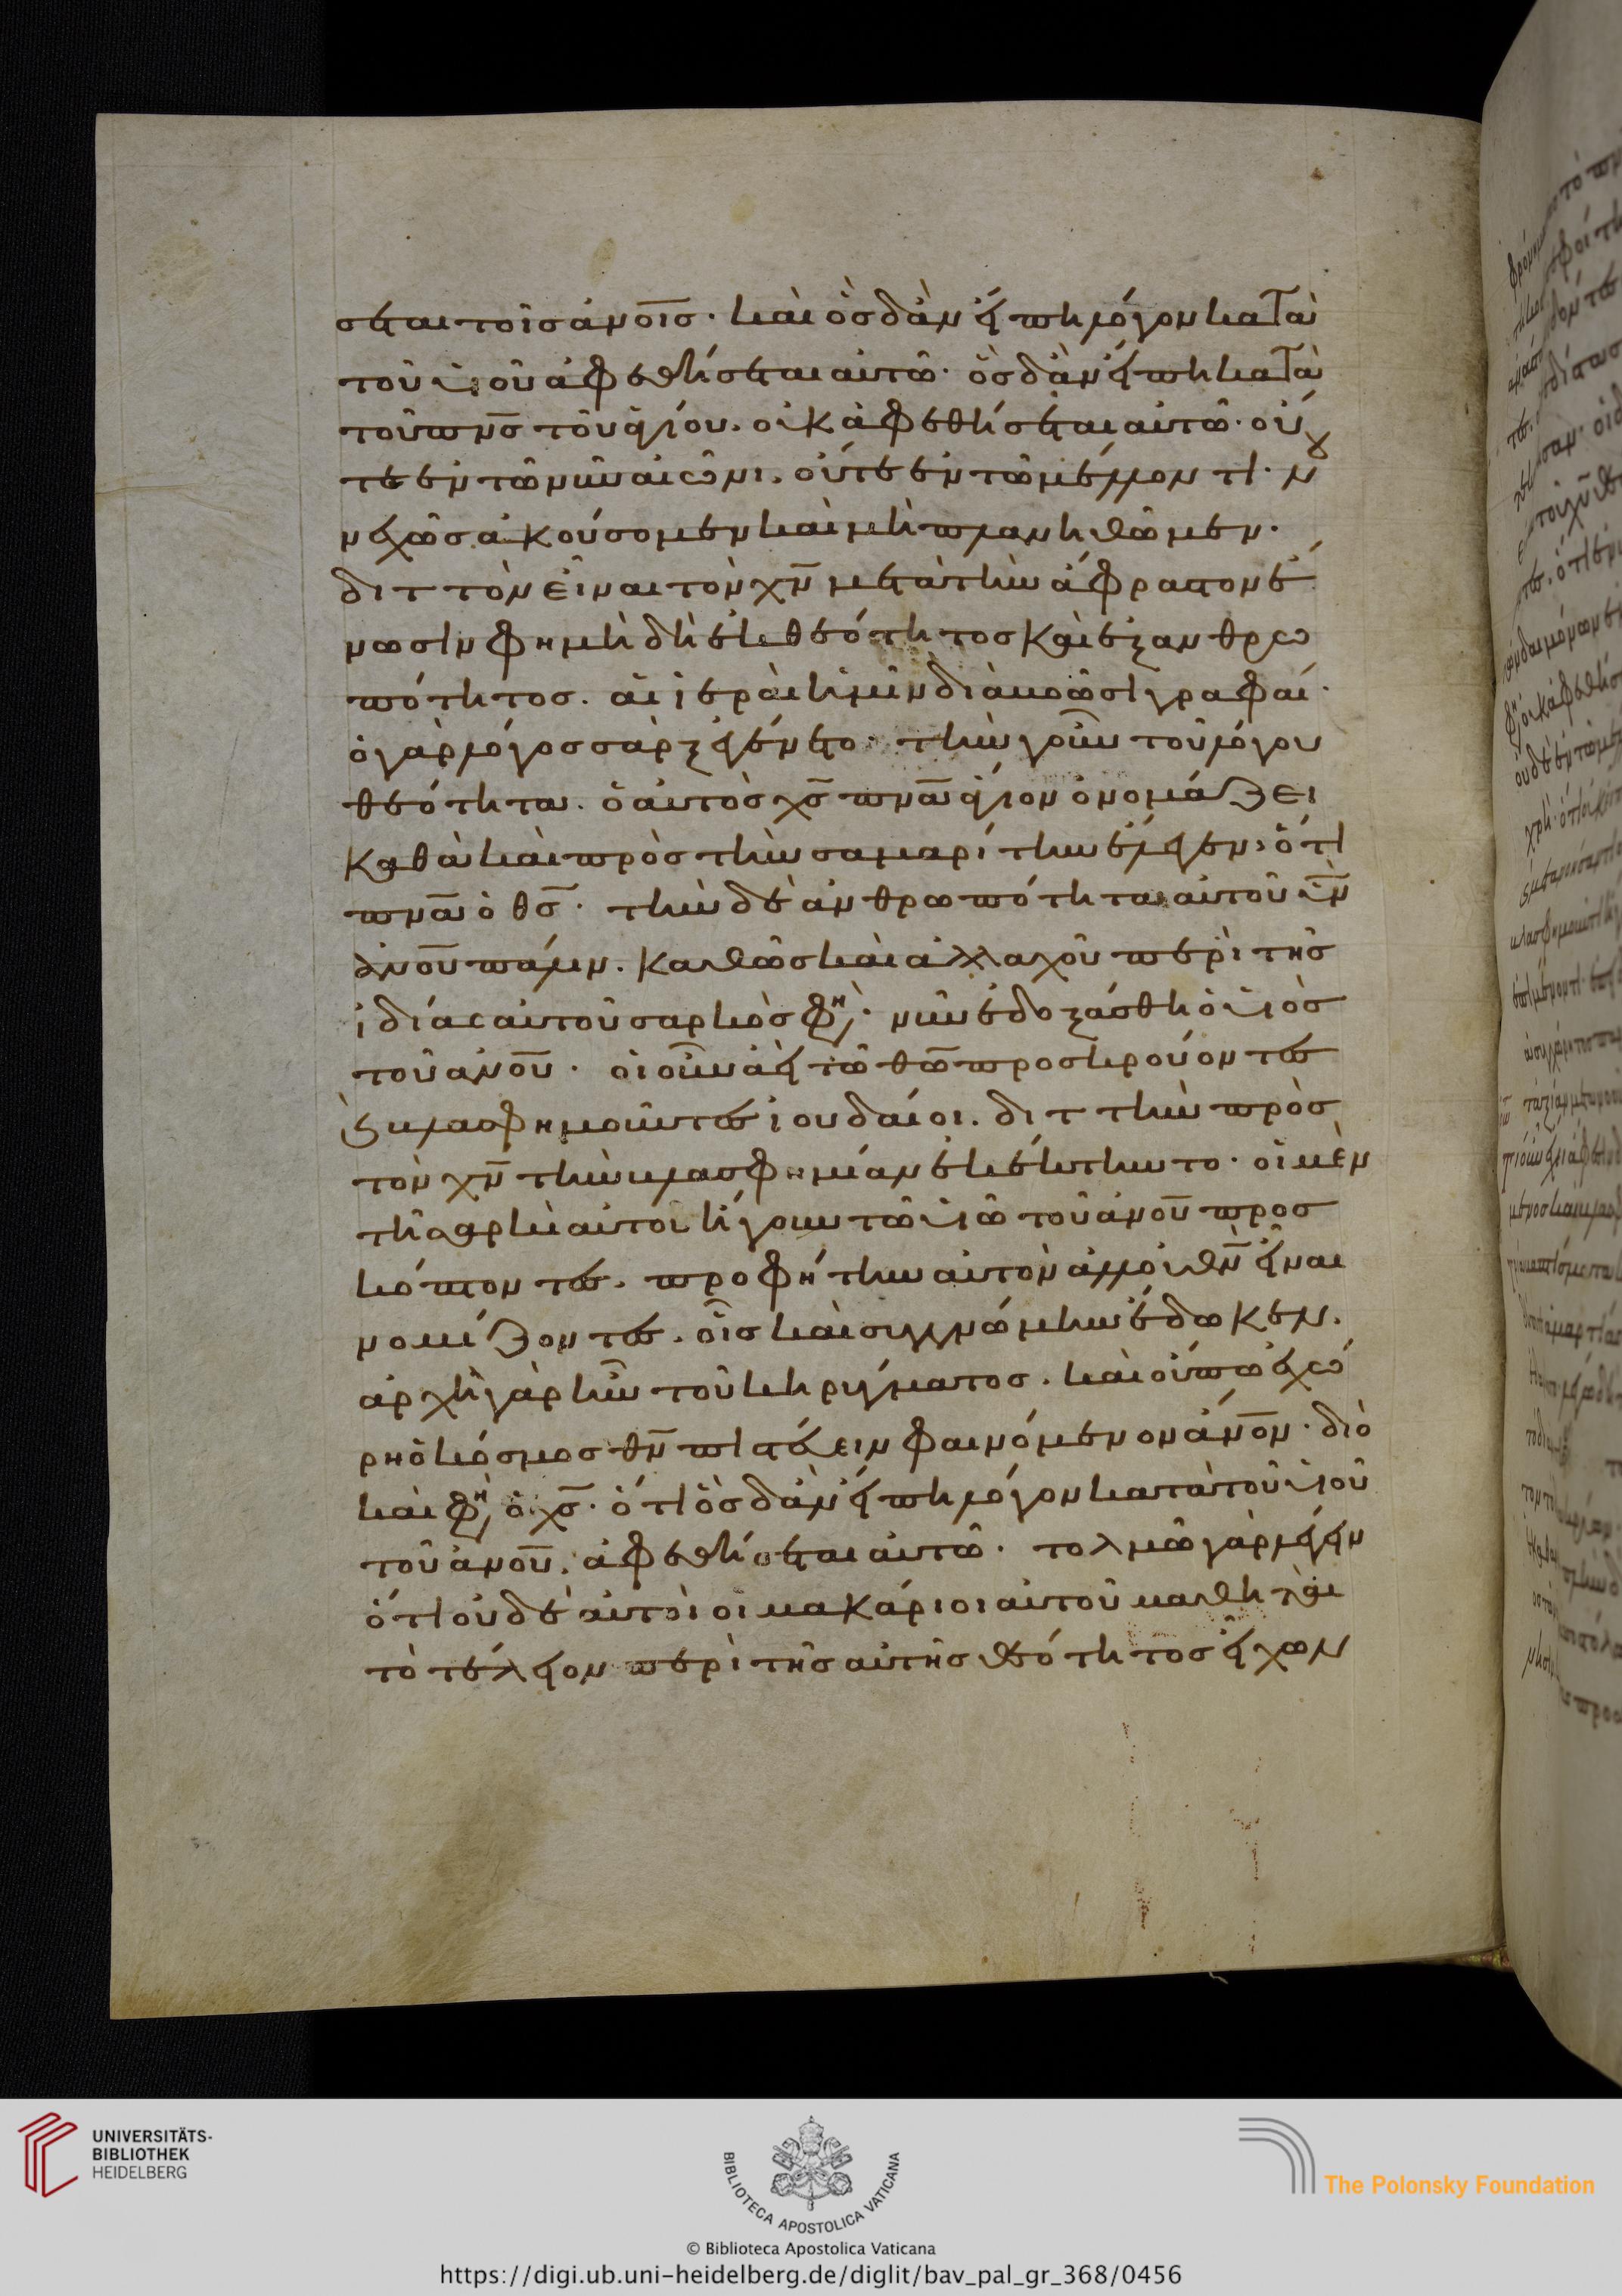 σεται τοῖς ἀνοις· καὶ ὃς δἂν εἴπη λόγον κατὰ
τοῦ υἱοῦ ἀφεθήσεται αὐτῶ· ὃς δἂν εἴπη κατὰ
τοῦ πνς τοῦ ἁγίου. οὐκ ἀφεθήσεται αὐτῶ· οὔ
τε ἐν τῶ νῦν αἰῶνι. οὔτε ἐν τῶ μέλλοντι·
νεχῶς ἀκούσομεν καὶ μὴ πλανηθῶμεν.
τὸν εἶναι τὸν χν μετὰ τὴν ἄφραστον ἕ
νωσιν φημὶ δὴ ἐκ θεότητος καὶ ἐξ ἀνθρω
πότητος. αἱ ἱεραὶ ἡμῖν διαβοῶσι γραφαί·
ὁ γὰρ λόγος σὰρξ ἐγένετο· τὴν γοῦν τοῦ λόγου
θεότητα. ὁ αὐτὸς χς πνα ἅγιον ὀνομάζει
καθὰ καὶ πρὸς τὴν σαμαρίτην ἔλεγεν· ὅτι
πνα ὁ θς· τὴν δὲ ἀνθρωπότητα αὐτοῦ υν
ἀνου πάλιν. καθὼς καὶ ἀλλαχοῦ περὶ τῆς
ἰδίας αὐτοῦ σαρκὸς φη· νῦν ἐδοξάσθη ὁ υἱὸς
τοῦ ἀνου· οἱ οὖν ἀεὶ τῶ θω προσκρούοντες
καὶ βλασφημοῦντες ἰουδαίοι. τὴν πρὸς
τὸν χν τὴν βλασφημίαν ἐκέκτηντο· οἱ μὲν
τῆ σαρκὶ αὐτοῦ ἤγουν τῶ υἱῶ τοῦ ἀνου προς
κόπτοντες. προφήτην αὐτὸν ἀλλ' οὐ θν εἶναι
νομίζοντες. οἷς καὶ συγγνώμην ἔδωκεν.
ἀρχὴ γὰρ ἦν τοῦ κηρύγματος. καὶ οὔπω ἐχώ
ρη ὁ κόσμος θν πιστεύειν φαινόμενον ἀνον· διὸ
καὶ φη ὁ χς· ὅτι ὃς δἂν εἴπη λόγον κατὰ τοῦ υἱοῦ
τοῦ ἀνου. ἀφεθήσεται αὐτῶ· τολμῶ γὰρ λέγειν
ὅτι οὐδὲ αὐτοὶ οἱ μακάριοι αὐτοῦ μαθηταὶ
τὸ τέλειον περὶ τῆς αὐτῆς θεότητος εἶχον
UNIVERSITÄTS-
BIBLIOTHEK
HEIDELBERG
BIBLIOTECA APOSTOLICA VATICANA
The Polonsky Foundation
© Biblioteca Apostolica Vaticana
https://digi.ub.uni-heidelberg.de/diglit/bav_pal_gr_368/0456